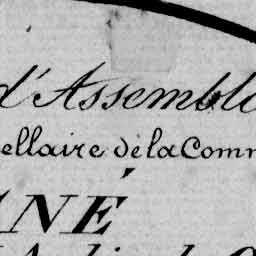 d'Assembl
ellaire de la Comm
NÉ